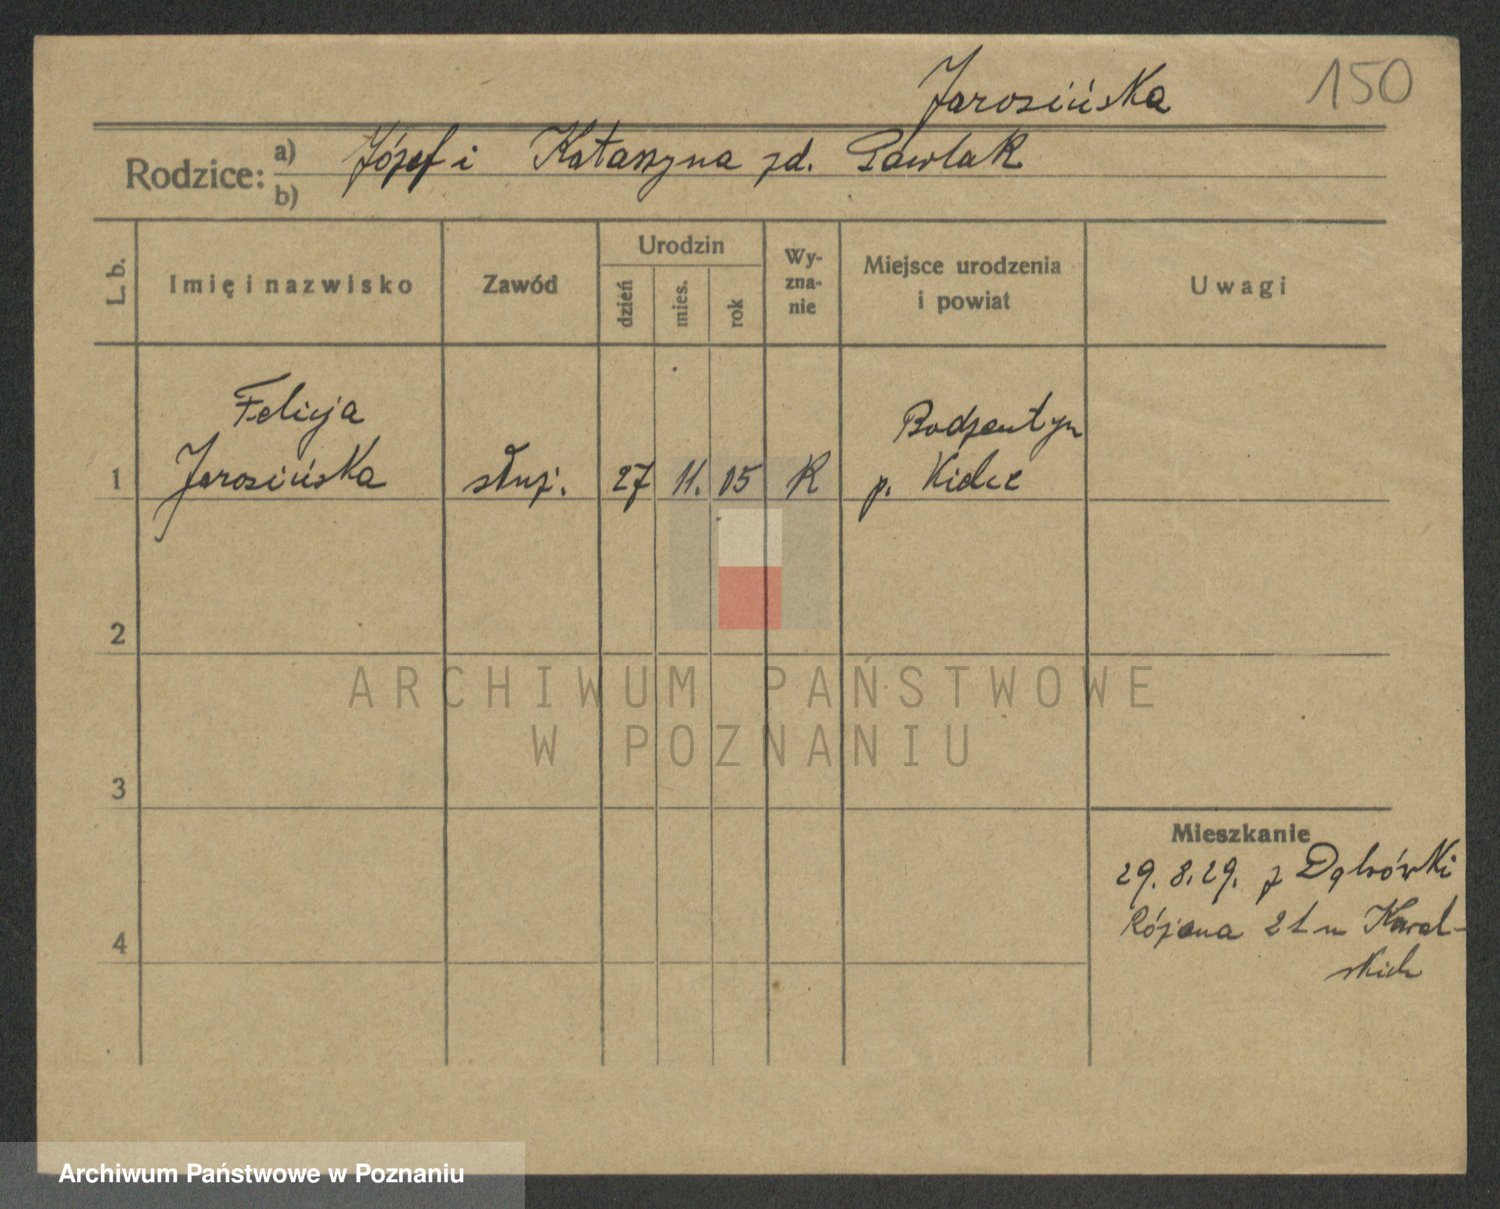 Jarosińska
150
Rodzice:
a) Józef i Katarzyna zd. Pawlak
b)
L. b.
Imię i nazwisko
Zawód
Urodzin
dzień
mies.
rok
Wy-
zna-
nie
Miejsce urodzenia
i powiat
Uwagi
Felicja
Jarosińska
1
służ.
27
11.
05
R
Bodzentyn
p. Kielce
2
3
4
ARCHIWUM PAŃSTWOWE
W POZNANIU
Mieszkanie
29.8.29. z Dąbrówki
Różana 21 u Kowal-
skich
Archiwum Państwowe w Poznaniu